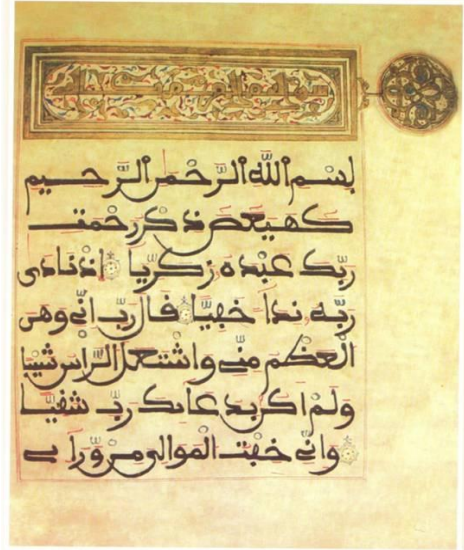 سورة مريم
بسم الله الرحمن الرحيم
كهيعص ذكر رحمت
ربك عبده زكريا إذ نادى
ربه نداء خفيا قال رب اني وهن
العظم مني واشتعل الراس شيبا
ولم اكن بدعائك رب شقيا
واني خفت الموالي من وراءي